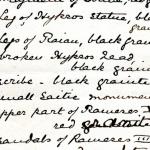 ley of Hyksos statue, bla
gran
legs of Raian, black gran
broken Hyksos head,
black grani
scribe - black granite
small Saite monumen
upper part of Rameses I
red
Sandals of Rameses II